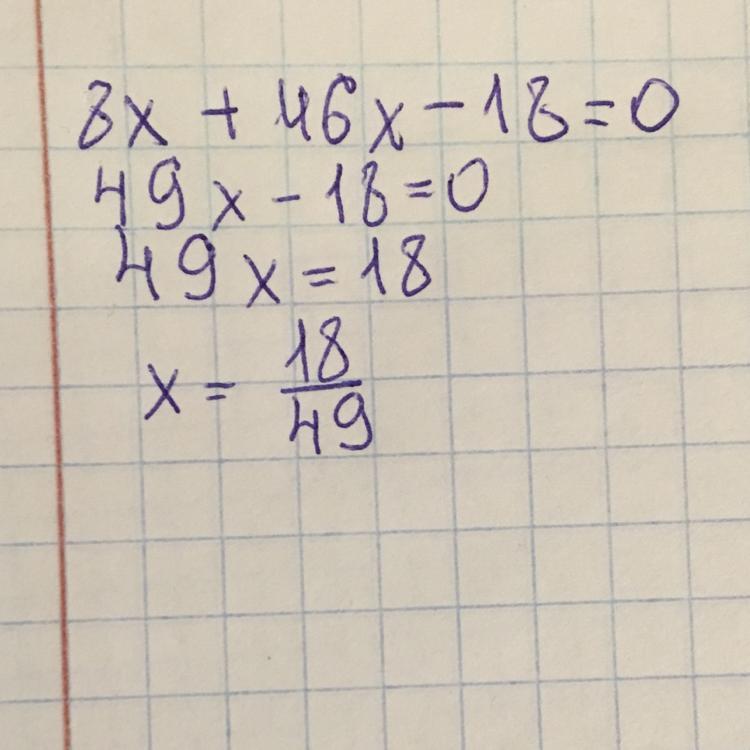 3x + 46x - 18 = 0
49x - 18 = 0
49x = 18
x = 18/49